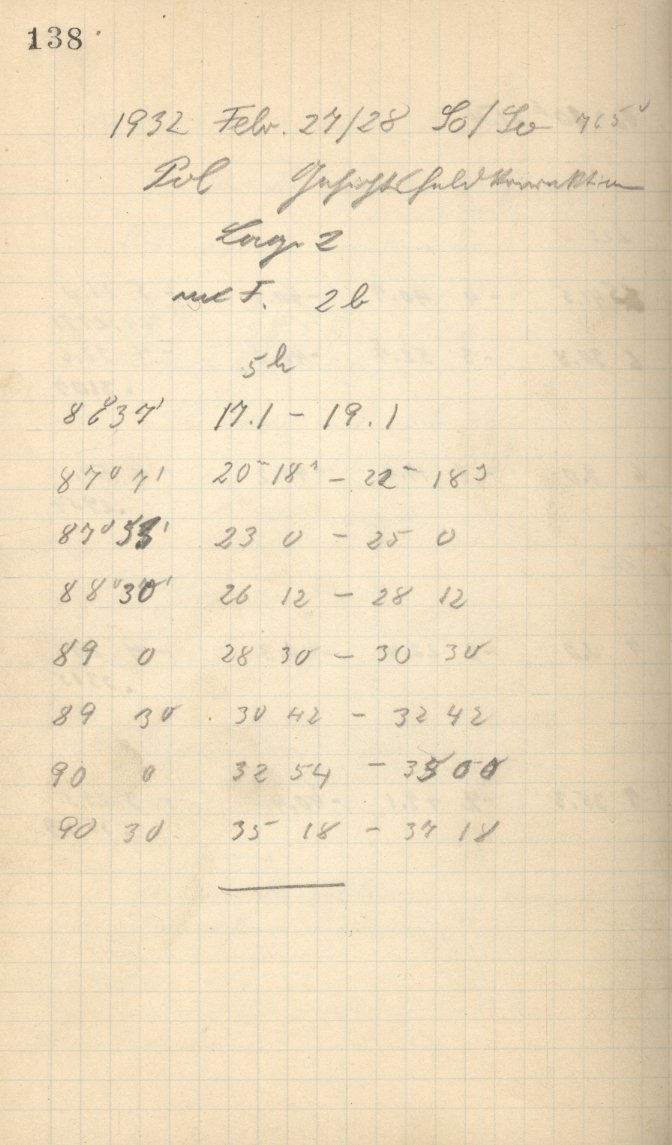 138
1932 Febr. 27/28 So/So 765
Pol Gesichtsfeldkorrektion
Lage 2
mit F. 2b
5h
86°37' 17.1 - 19.1
87° 7' 20 18 - 22 18
87° 53' 23 0 - 25 0
88° 30' 26 12 - 28 12
89 0 28 30 - 30 30
89 30 30 42 - 32 42
90 0 32 54 - 35 00
90 30 35 18 - 37 18